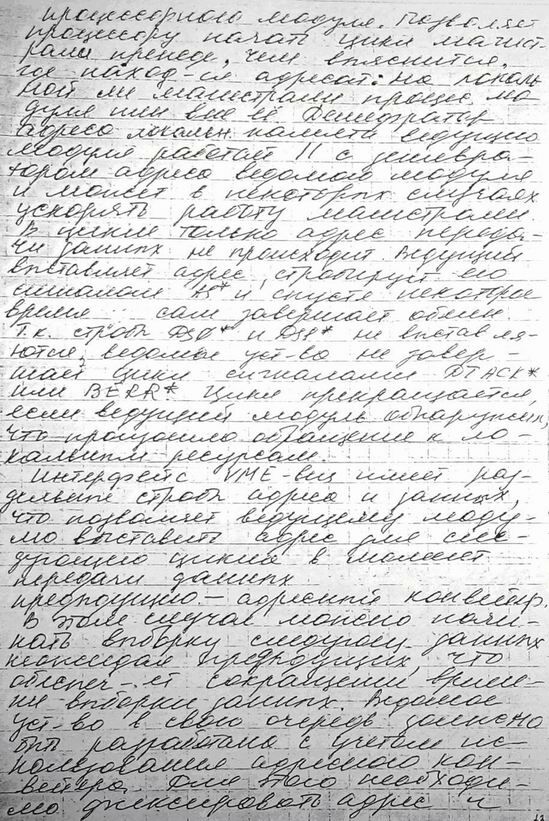 процессорного модуля. Позволяет
процессору начать цикл магист-
рали прежде, чем выяснится,
где наход-ся адресат: на локаль
ной ли магистрали процес. мо-
дуля или вне её. Дешифратор
адреса локальн. памяти ведущего
модуля работает || с дешифра-
тором адреса ведомого модуля
и может в некоторых случаях
ускорять работу магистрали.
В цикле только адрес переда-
чи данных не происходит. Ведущий
выставляет адрес, стробирует его
сигналом AS* и спустя некоторое
время сам завершает обмен.
Т.к. стробы DS0* и DS1* не выставля-
ются, ведомые уст-во не завер-
шает цикл сигналами DTACK*
или BERR* Цикл прекращается,
если ведущий модуль обнаружил,
что произошло обращение к ло-
кальным ресурсам.
Интерфейс VME-bus имеет раз-
дельные стробы адреса и данных,
что позволяет ведущему моду-
лю выставить адрес для сле-
дующего цикла в момент
передачи данных
предыдущего – адресный конвейер.
В этом случае можно начи-
нать выборку следующ. данных
неожидая предыдущих, что
обеспеч-ет сокращение време-
ни выборки данных. Ведомое
уст-во в свою очередь должно
быть разработано с учетом ис-
пользования адресного кон-
вейера. Для этого необходи-
мо фиксировать адрес и